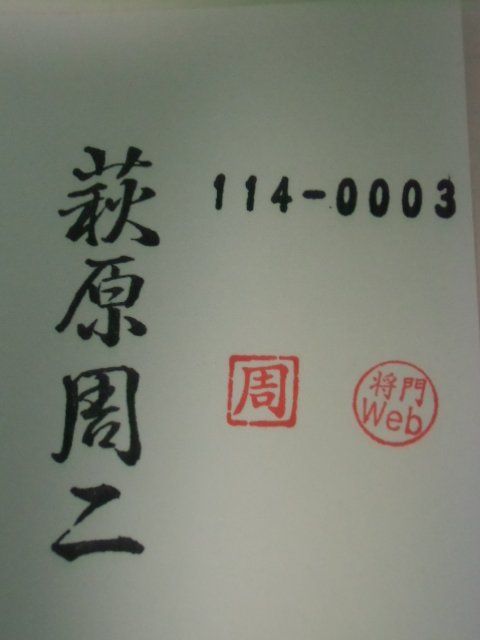 萩原周二
114-0003
周
将門
Web